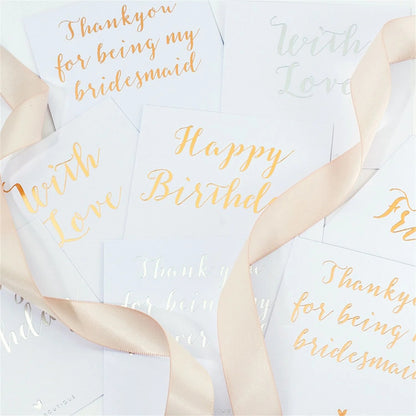 Thankyou
for being my
bridesmaid
With
Love
With
Love
Happy
Birthd
Fri
Thank you
for being my
Thankyou
for being my
bridesmaid
BOUTIQUE